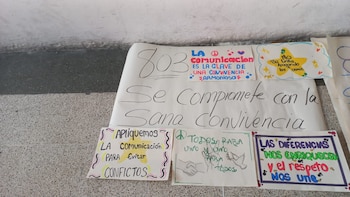 803
LA
comunicación
ES LA CLAVE DE
UNA CONVIVENCIA
ARMONIOSA
Se compromete con la
Sana convivencia
APLIQUEMOS
LA COMUNICACIÓN
PARA EVITAR
CONFICTOS.
TODOS
UNA
LAS DIFERENCIAS
NOS ENRIQUECEN
y el respeto
NOS UNE